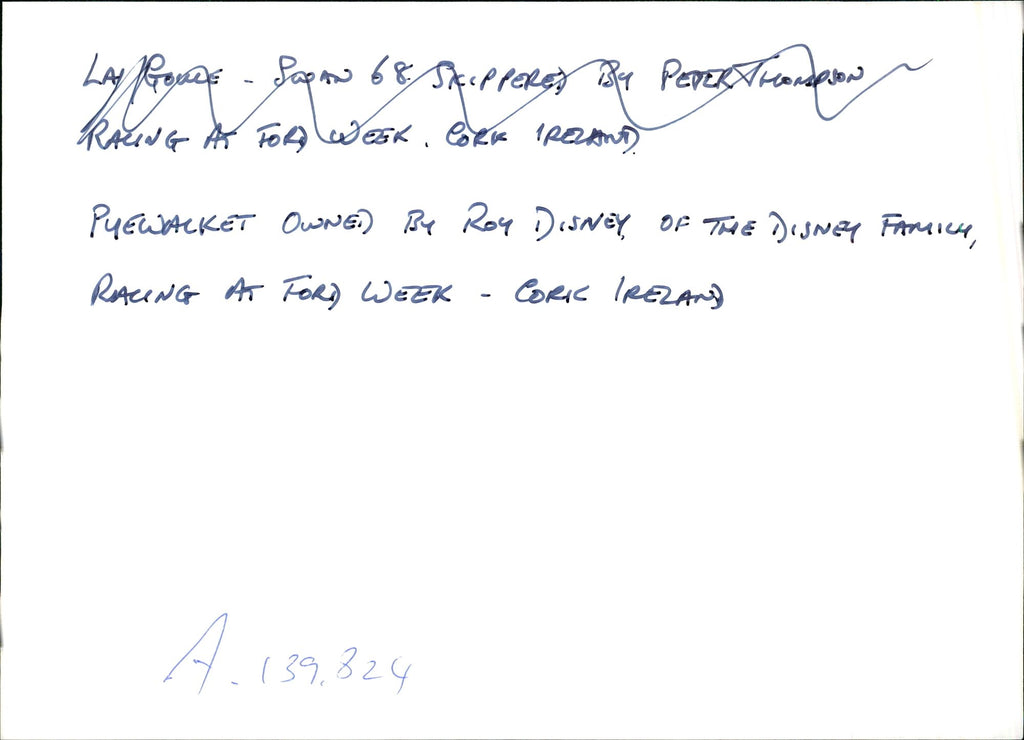 - SWAN 68 SKIPPERED BY PETER THOMPSON
RACING AT FORD WEEK. CORK IRELAND.
PYEWACKET OWNED BY ROY DISNEY, OF THE DISNEY FAMILY,
RACING AT FORD WEEK - CORK IRELAND
A. 139.824